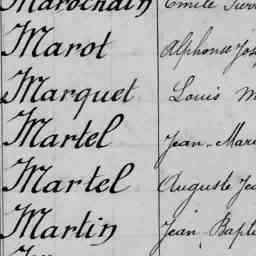 Marochain Emile
Marot Alphonse
Marquet Louis
Martel Jean-Mari
Martel Auguste
Martin Jean Bapti